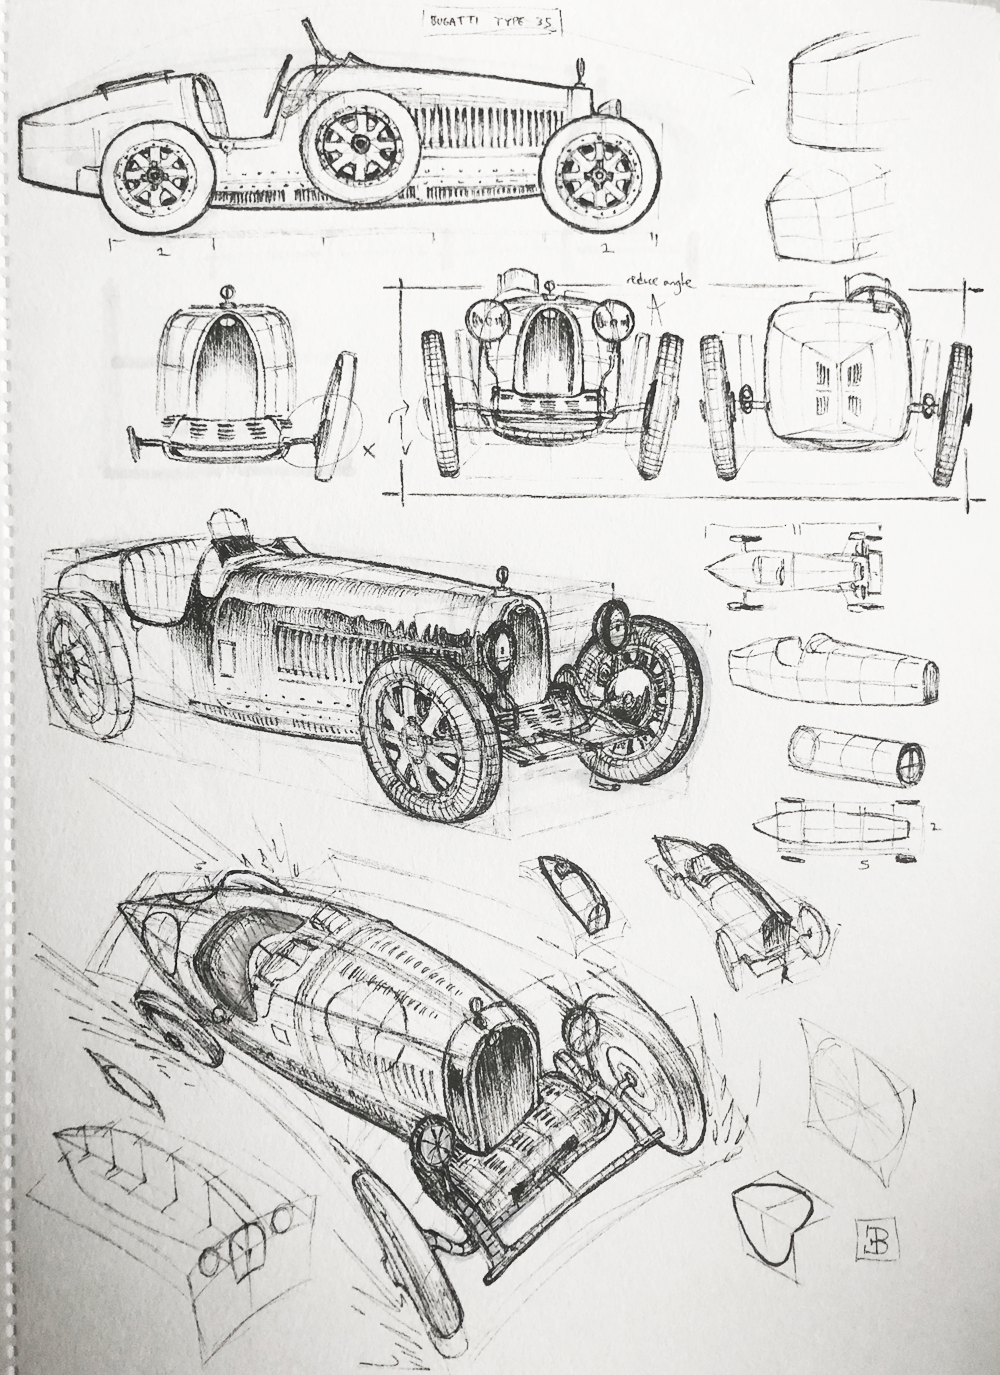 BUGATTI TYPE 35
2
2
reduce angle
X
2
5
EB